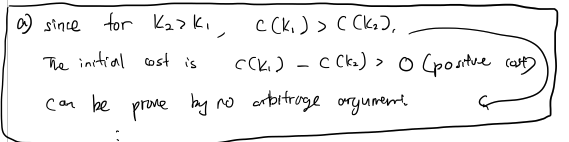 a) since for K₂ > K₁, C(K₁) > C(K₂).
The initial cost is C(K₁) - C(K₂) > 0 (positive cost)
can be prove by no arbitrage argument.
: